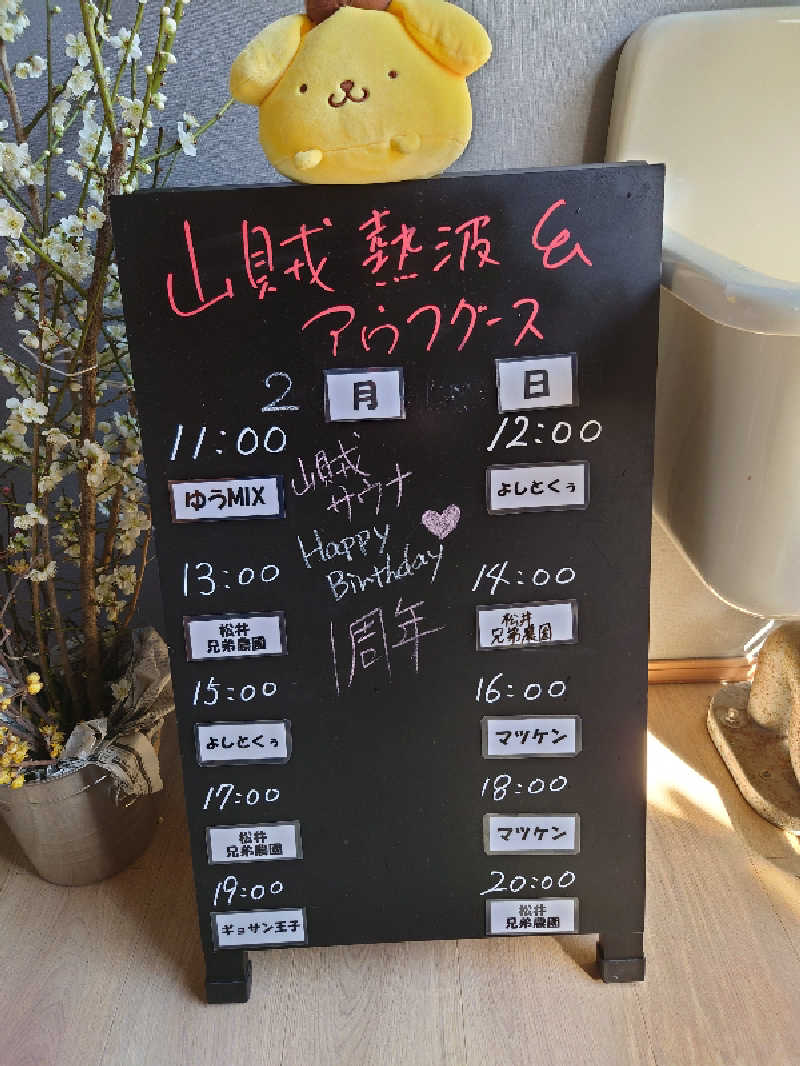 山賊 熱波 &
アウフグース
2 月 日
11:00 12:00
ゆうMIX よしとくぅ
山賊
サウナ
Happy
Birthday
1周年
13:00 14:00
松井
兄弟農園
松井
兄弟農園
15:00 16:00
よしとくぅ マツケン
17:00 18:00
松井
兄弟農園
マツケン
19:00 20:00
ギョサン王子
松井
兄弟農園